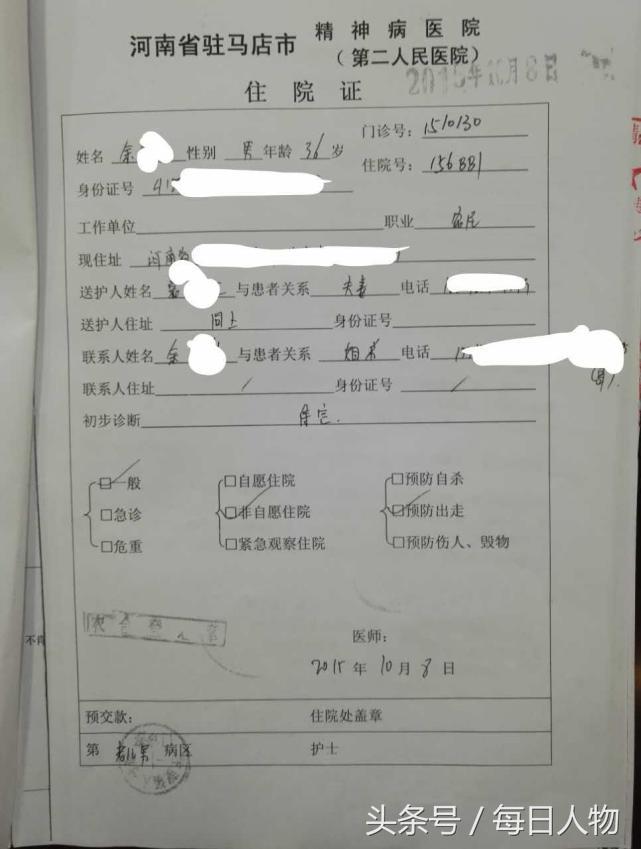 河南省驻马店市 精神病医院
（第二人民医院）
2015年10月8日
住院证
门诊号：1510130
姓名 余 性别 男 年龄 36 岁
住院号：156881
身份证号 41
工作单位 职业 农民
现住址 河南省
送护人姓名 与患者关系 夫妻 电话
送护人住址 同上 身份证号
联系人姓名 余 与患者关系 电话
联系人住址 / 身份证号 /
初步诊断
□一般 □自愿住院 □预防自杀
□急诊 □非自愿住院 □预防出走
□危重 □紧急观察住院 □预防伤人、毁物
医师：
2015 年 10 月 8 日
预交款： 住院处盖章
第 病区 护士
不肯
头条号 / 每日人物